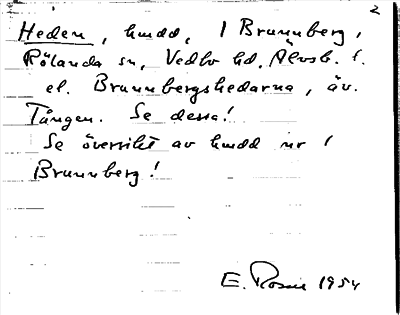 2
Heden, hmdd, 1 Brunnberg,
Rölanda sn, Vedbo hd, Älvsb. l.
el. Brunnbergshedarna, äv.
Tången. Se dessa!
Se översikt av hmdd nr 1
Brunnberg!
E. Rosin 1954